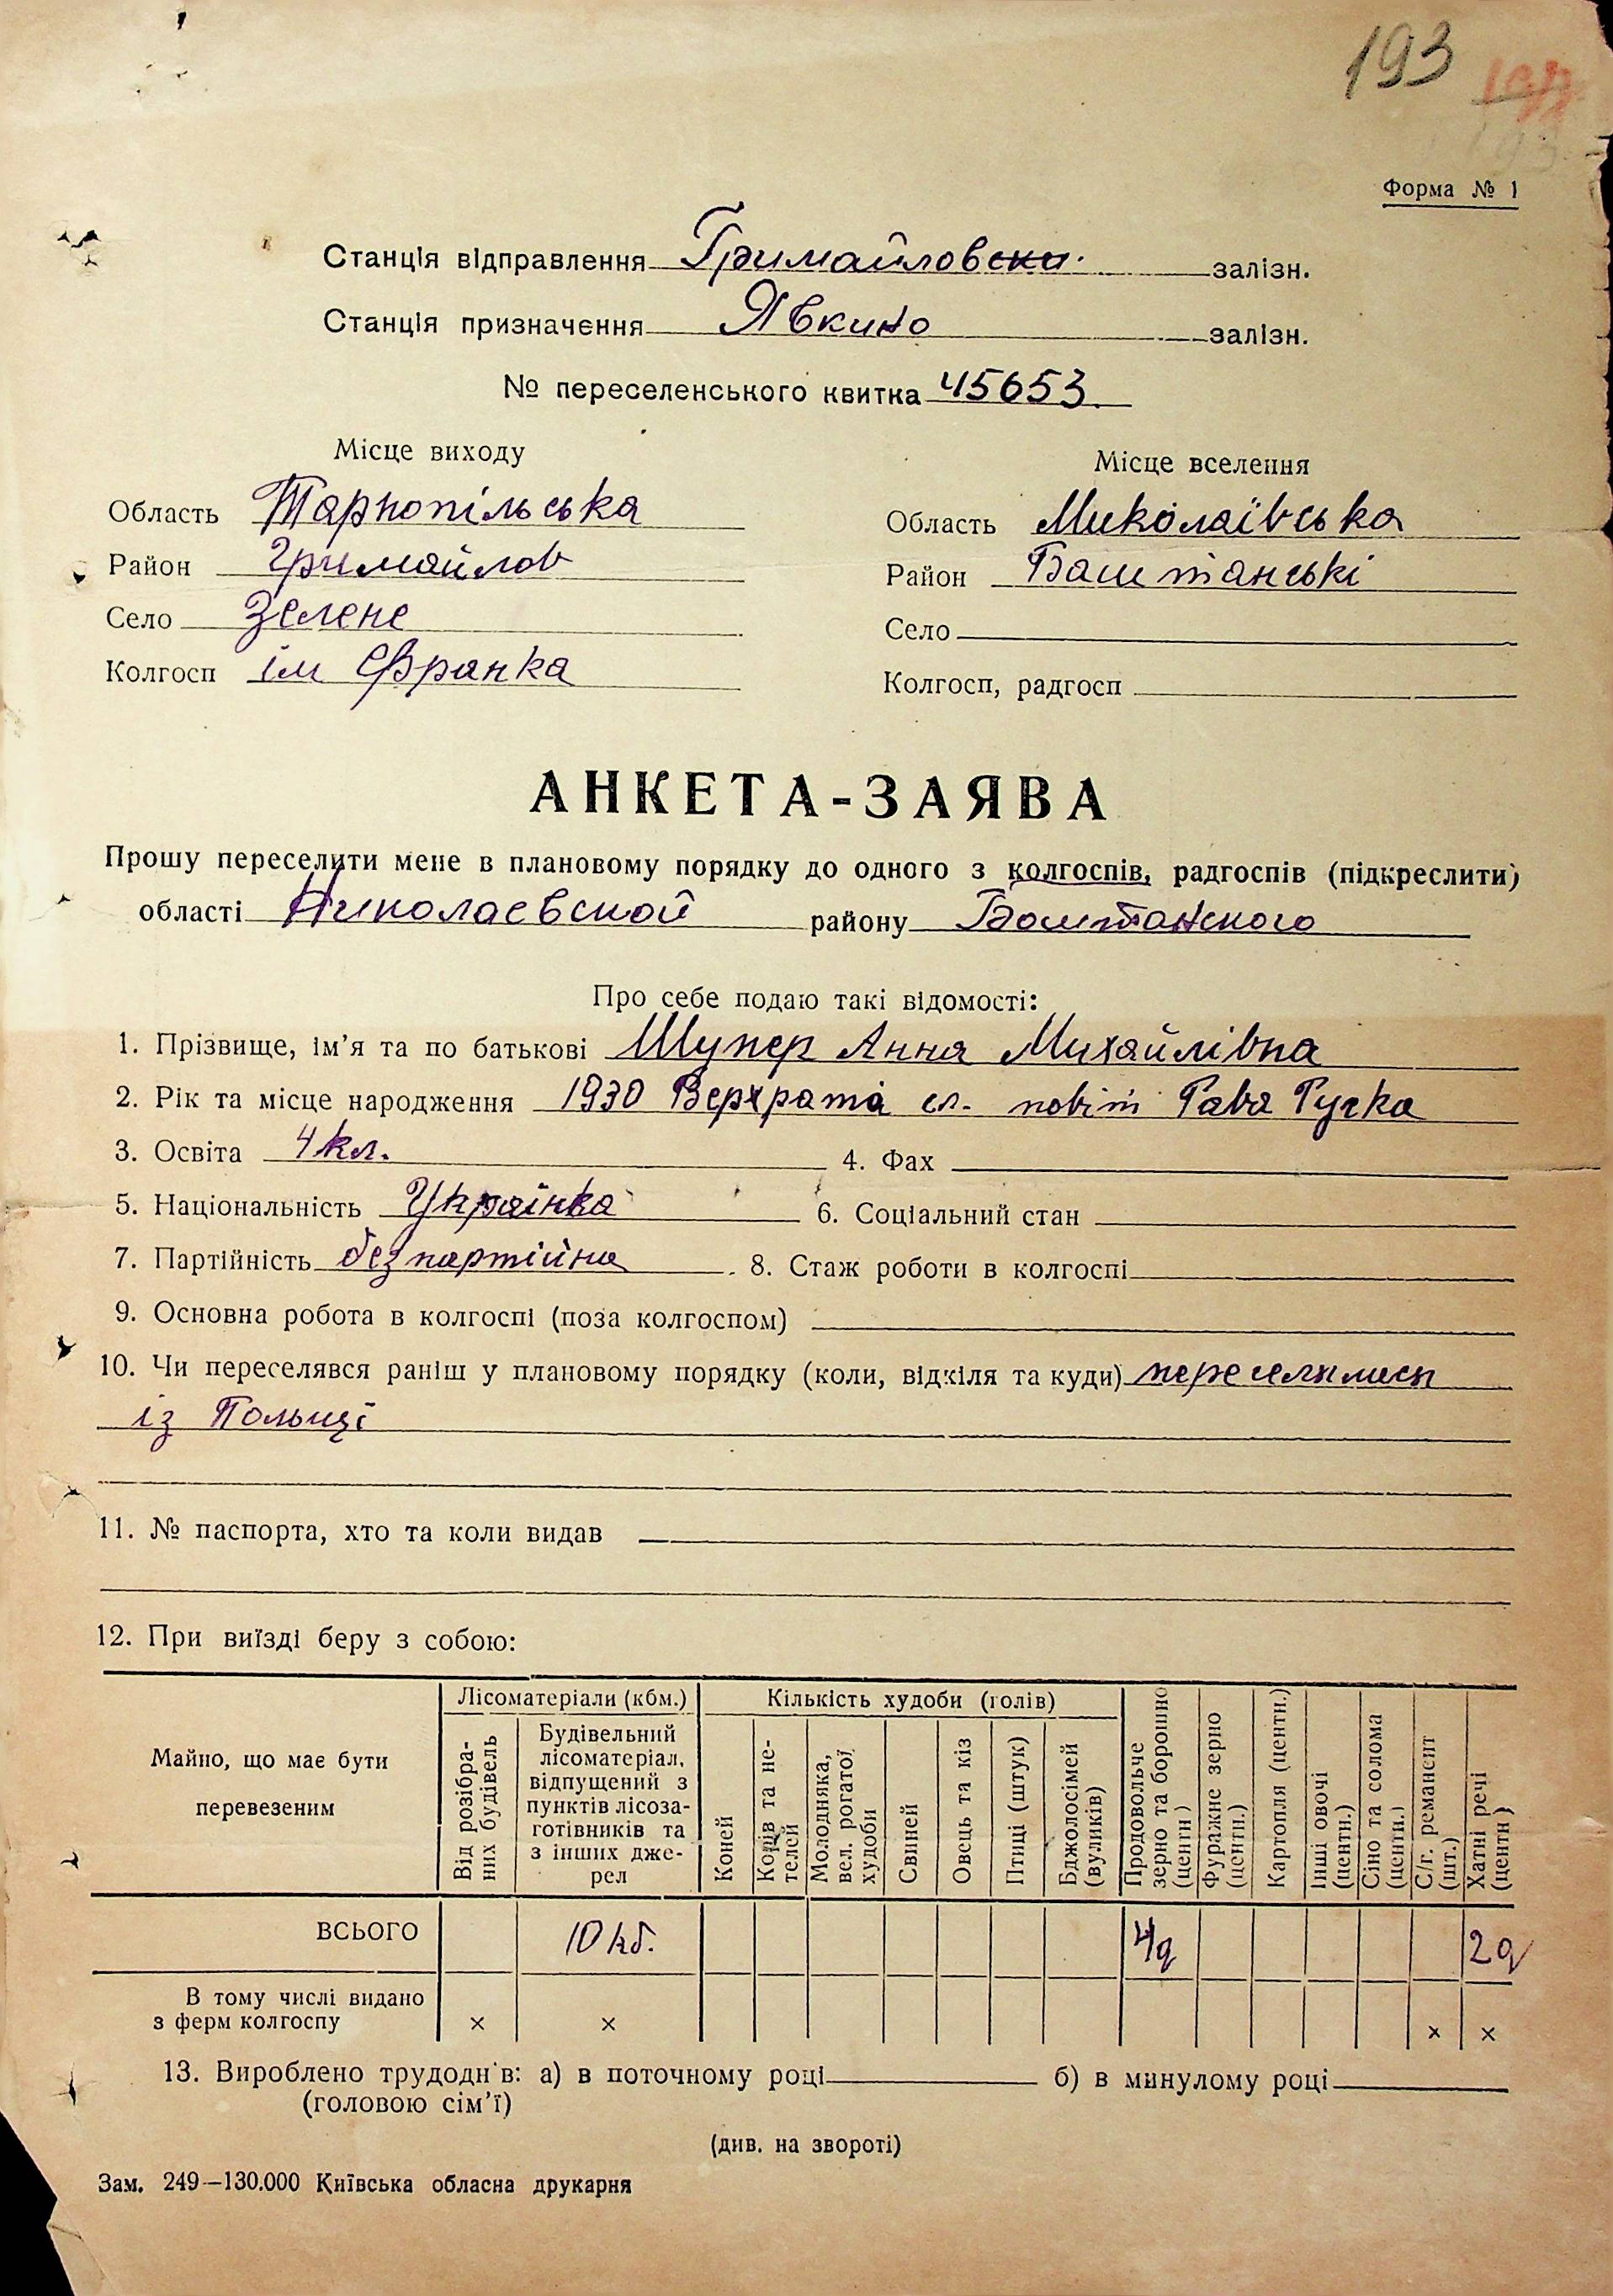 193
Форма № 1
Станція відправлення Гримайловска залізн.
Станція призначення Явкино залізн.
№ переселенського квитка 45653
Місце виходу
Місце вселення
Область Тарнопільська
Область Миколаївська
Район Гримайлов
Район Баштанські
Село Зелене
Село
Колгосп ім Франка
Колгосп, радгосп
АНКЕТА-ЗАЯВА
Прошу переселити мене в плановому порядку до одного з колгоспів, радгоспів (підкреслити)
області Николаевской району Баштанского
Про себе подаю такі відомості:
1. Прізвище, ім'я та по батькові Шупер Анна Михайлівна
2. Рік та місце народження 1930 Верхрата сл. повіт Рава Руска
3. Освіта 4 кл. 4. Фах
5. Національність Українка 6. Соціальний стан
7. Партійність безпартійна 8. Стаж роботи в колгоспі
9. Основна робота в колгоспі (поза колгоспом)
10. Чи переселявся раніш у плановому порядку (коли, відкіля та куди) переселились
із Польщі
11. № паспорта, хто та коли видав
12. При виїзді беру з собою:
Майно, що має бути
перевезеним
Лісоматеріали (кбм.)
Від розібра-
них будівель
Будівельний
лісоматеріал,
відпущений з
пунктів лісоза-
готівників та
з інших дже-
рел
Кількість худоби (голів)
Коней
Корів та не-
телей
Молодняка,
вел. рогатої
худоби
Свиней
Овець та кіз
Птиці (штук)
Бджолосімей
(вуликів)
Продовольче
зерно та борошно
(центн)
Фуражне зерно
(центн.)
Картопля (центн.)
Інші овочі
(центн.)
Сіно та солома
(центн.)
С/г. реманент
(шт.)
Хатні речі
(центн)
ВСЬОГО 10 кб. 4 q 2 q
В тому числі видано
з ферм колгоспу × × × ×
13. Вироблено трудоднів: а) в поточному році б) в минулому році
(головою сім'ї)
(див. на звороті)
Зам. 249—130.000 Київська обласна друкарня